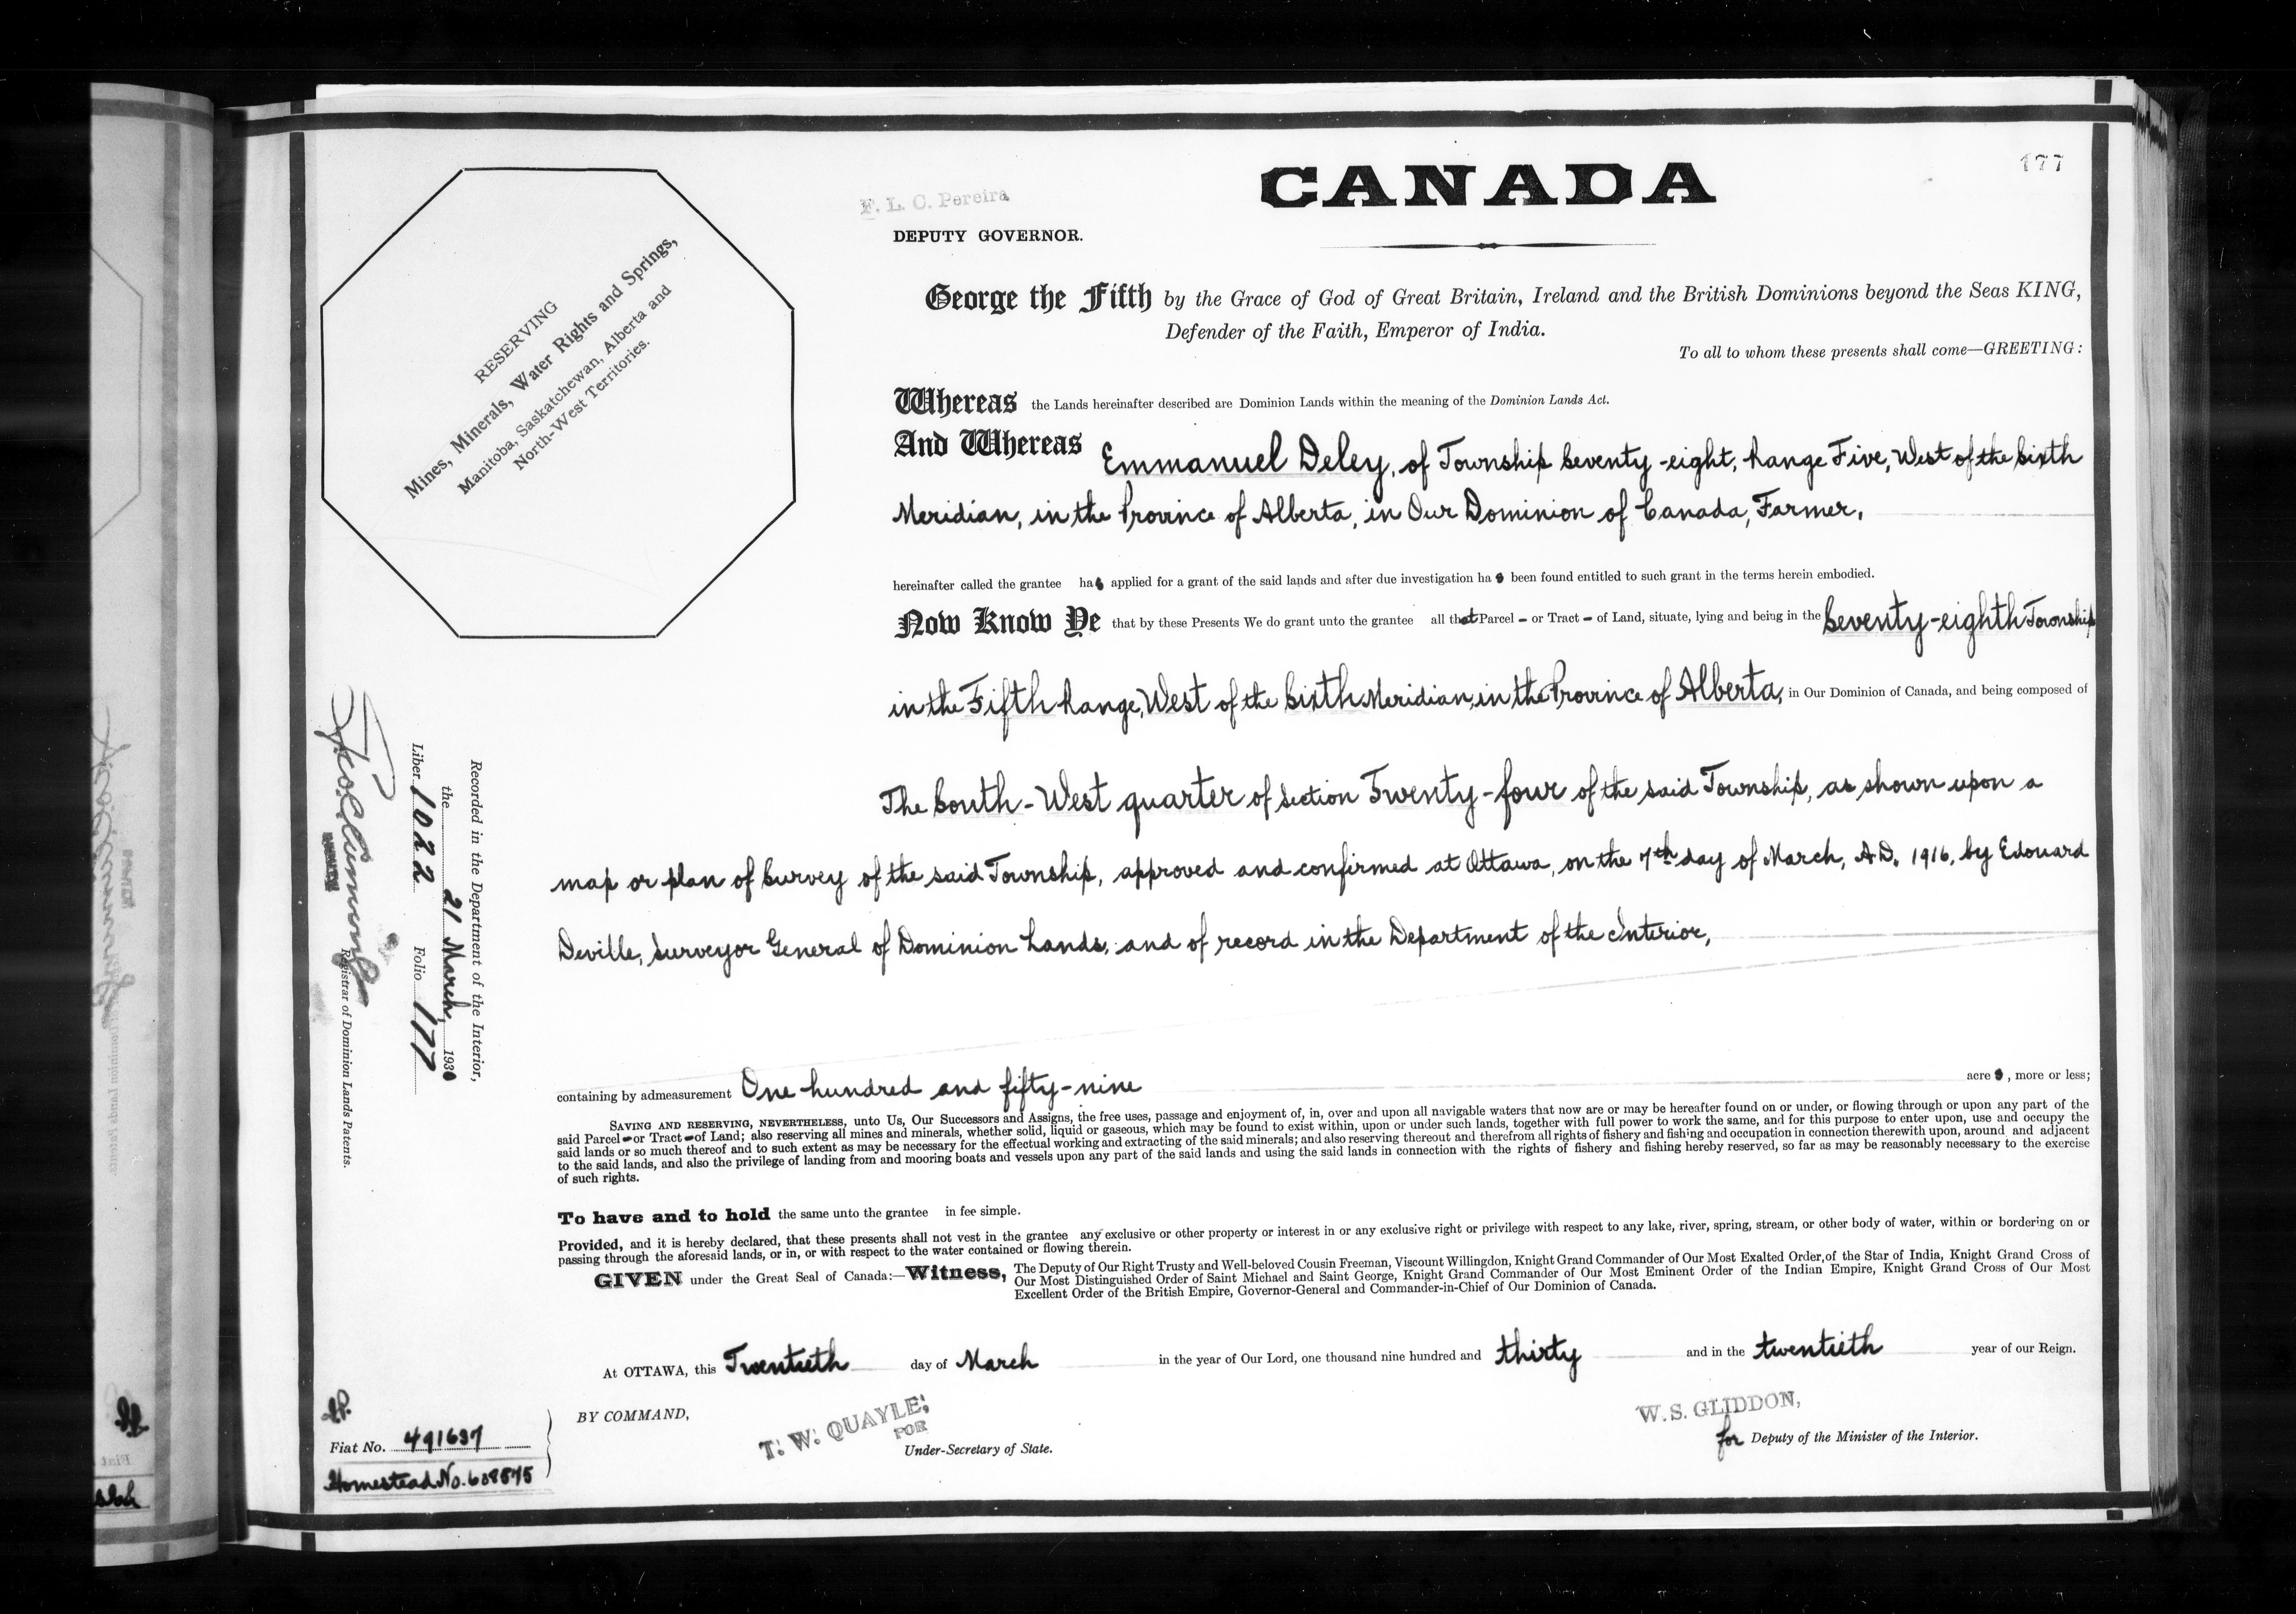 177
F. L. C. Pereira
CANADA
DEPUTY GOVERNOR.
RESERVING
Mines, Minerals, Water Rights and Springs,
Manitoba, Saskatchewan, Alberta and
North-West Territories.
George the Fifth by the Grace of God of Great Britain, Ireland and the British Dominions beyond the Seas KING,
Defender of the Faith, Emperor of India.
To all to whom these presents shall come—GREETING:
Whereas the Lands hereinafter described are Dominion Lands within the meaning of the Dominion Lands Act.
And Whereas Emmanuel Deley, of Township Seventy-eight, Range Five, West of the Sixth
Meridian, in the Province of Alberta, in Our Dominion of Canada, Farmer,
hereinafter called the grantee has applied for a grant of the said lands and after due investigation has been found entitled to such grant in the terms herein embodied.
Now Know Ye that by these Presents We do grant unto the grantee all that Parcel - or Tract - of Land, situate, lying and being in the Seventy-eighth Township
in the Fifth Range, West of the Sixth Meridian, in the Province of Alberta, in Our Dominion of Canada, and being composed of
The South-West quarter of Section Twenty-four of the said Township, as shown upon a
map or plan of Survey of the said Township, approved and confirmed at Ottawa, on the 7th day of March, A.D. 1916, by Edouard
Deville, Surveyor General of Dominion Lands, and of record in the Department of the Interior,
containing by admeasurement One hundred and fifty-nine acres, more or less;
SAVING AND RESERVING, NEVERTHELESS, unto Us, Our Successors and Assigns, the free uses, passage and enjoyment of, in, over and upon all navigable waters that now are or may be hereafter found on or under, or flowing through or upon any part of the
said Parcel - or Tract - of Land; also reserving all mines and minerals, whether solid, liquid or gaseous, which may be found to exist within, upon or under such lands, together with full power to work the same, and for this purpose to enter upon, use and occupy the
said lands or so much thereof and to such extent as may be necessary for the effectual working and extracting of the said minerals; and also reserving thereout and therefrom all rights of fishery and fishing and occupation in connection therewith upon, around and adjacent
to the said lands, and also the privilege of landing from and mooring boats and vessels upon any part of the said lands and using the said lands in connection with the rights of fishery and fishing hereby reserved, so far as may be reasonably necessary to the exercise
of such rights.
To have and to hold the same unto the grantee in fee simple.
Provided, and it is hereby declared, that these presents shall not vest in the grantee any exclusive or other property or interest in or any exclusive right or privilege with respect to any lake, river, spring, stream, or other body of water, within or bordering on or
passing through the aforesaid lands, or in, or with respect to the water contained or flowing therein.
GIVEN under the Great Seal of Canada:—Witness, The Deputy of Our Right Trusty and Well-beloved Cousin Freeman, Viscount Willingdon, Knight Grand Commander of Our Most Exalted Order of the Star of India, Knight Grand Cross of
Our Most Distinguished Order of Saint Michael and Saint George, Knight Grand Commander of Our Most Eminent Order of the Indian Empire, Knight Grand Cross of Our Most
Excellent Order of the British Empire, Governor-General and Commander-in-Chief of Our Dominion of Canada.
At OTTAWA, this Twentieth day of March in the year of Our Lord, one thousand nine hundred and thirty and in the twentieth year of our Reign.
BY COMMAND,
T. W. QUAYLE,
FOR
Under-Secretary of State.
W. S. GLIDDON,
for Deputy of the Minister of the Interior.
Recorded in the Department of the Interior,
the 21 March, 1930
Liber 1022 Folio 177
Registrar of Dominion Lands Patents.
Fiat No. 491637
Homestead No. 608575